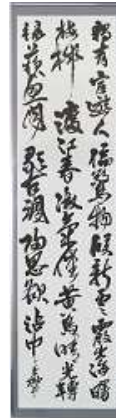 獨有宦遊人偏驚物候新雲霞出海曙
梅柳渡江春淑氣催黃鳥晴光轉
綠蘋忽聞歌古調歸思欲沾巾